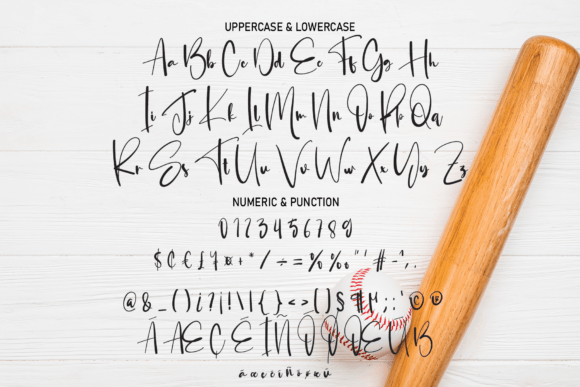 UPPERCASE & LOWERCASE
Aa Bb Cc Dd Ee Ff Gg Hh
Ii Jj Kk Ll Mm Nn Oo Pp Qq
Rr Ss Tt Uu Vv Ww Xx Yy Zz
NUMERIC & PUNCTION
0123456789
$ ¢ € £ ¥ ¤ + * / ÷ = % ‰ " ' # - ^ , .
@ & _ ( ) ¿ ? ¡ ! \ | { } < > [ ] § ¶ µ ; : ' © ®